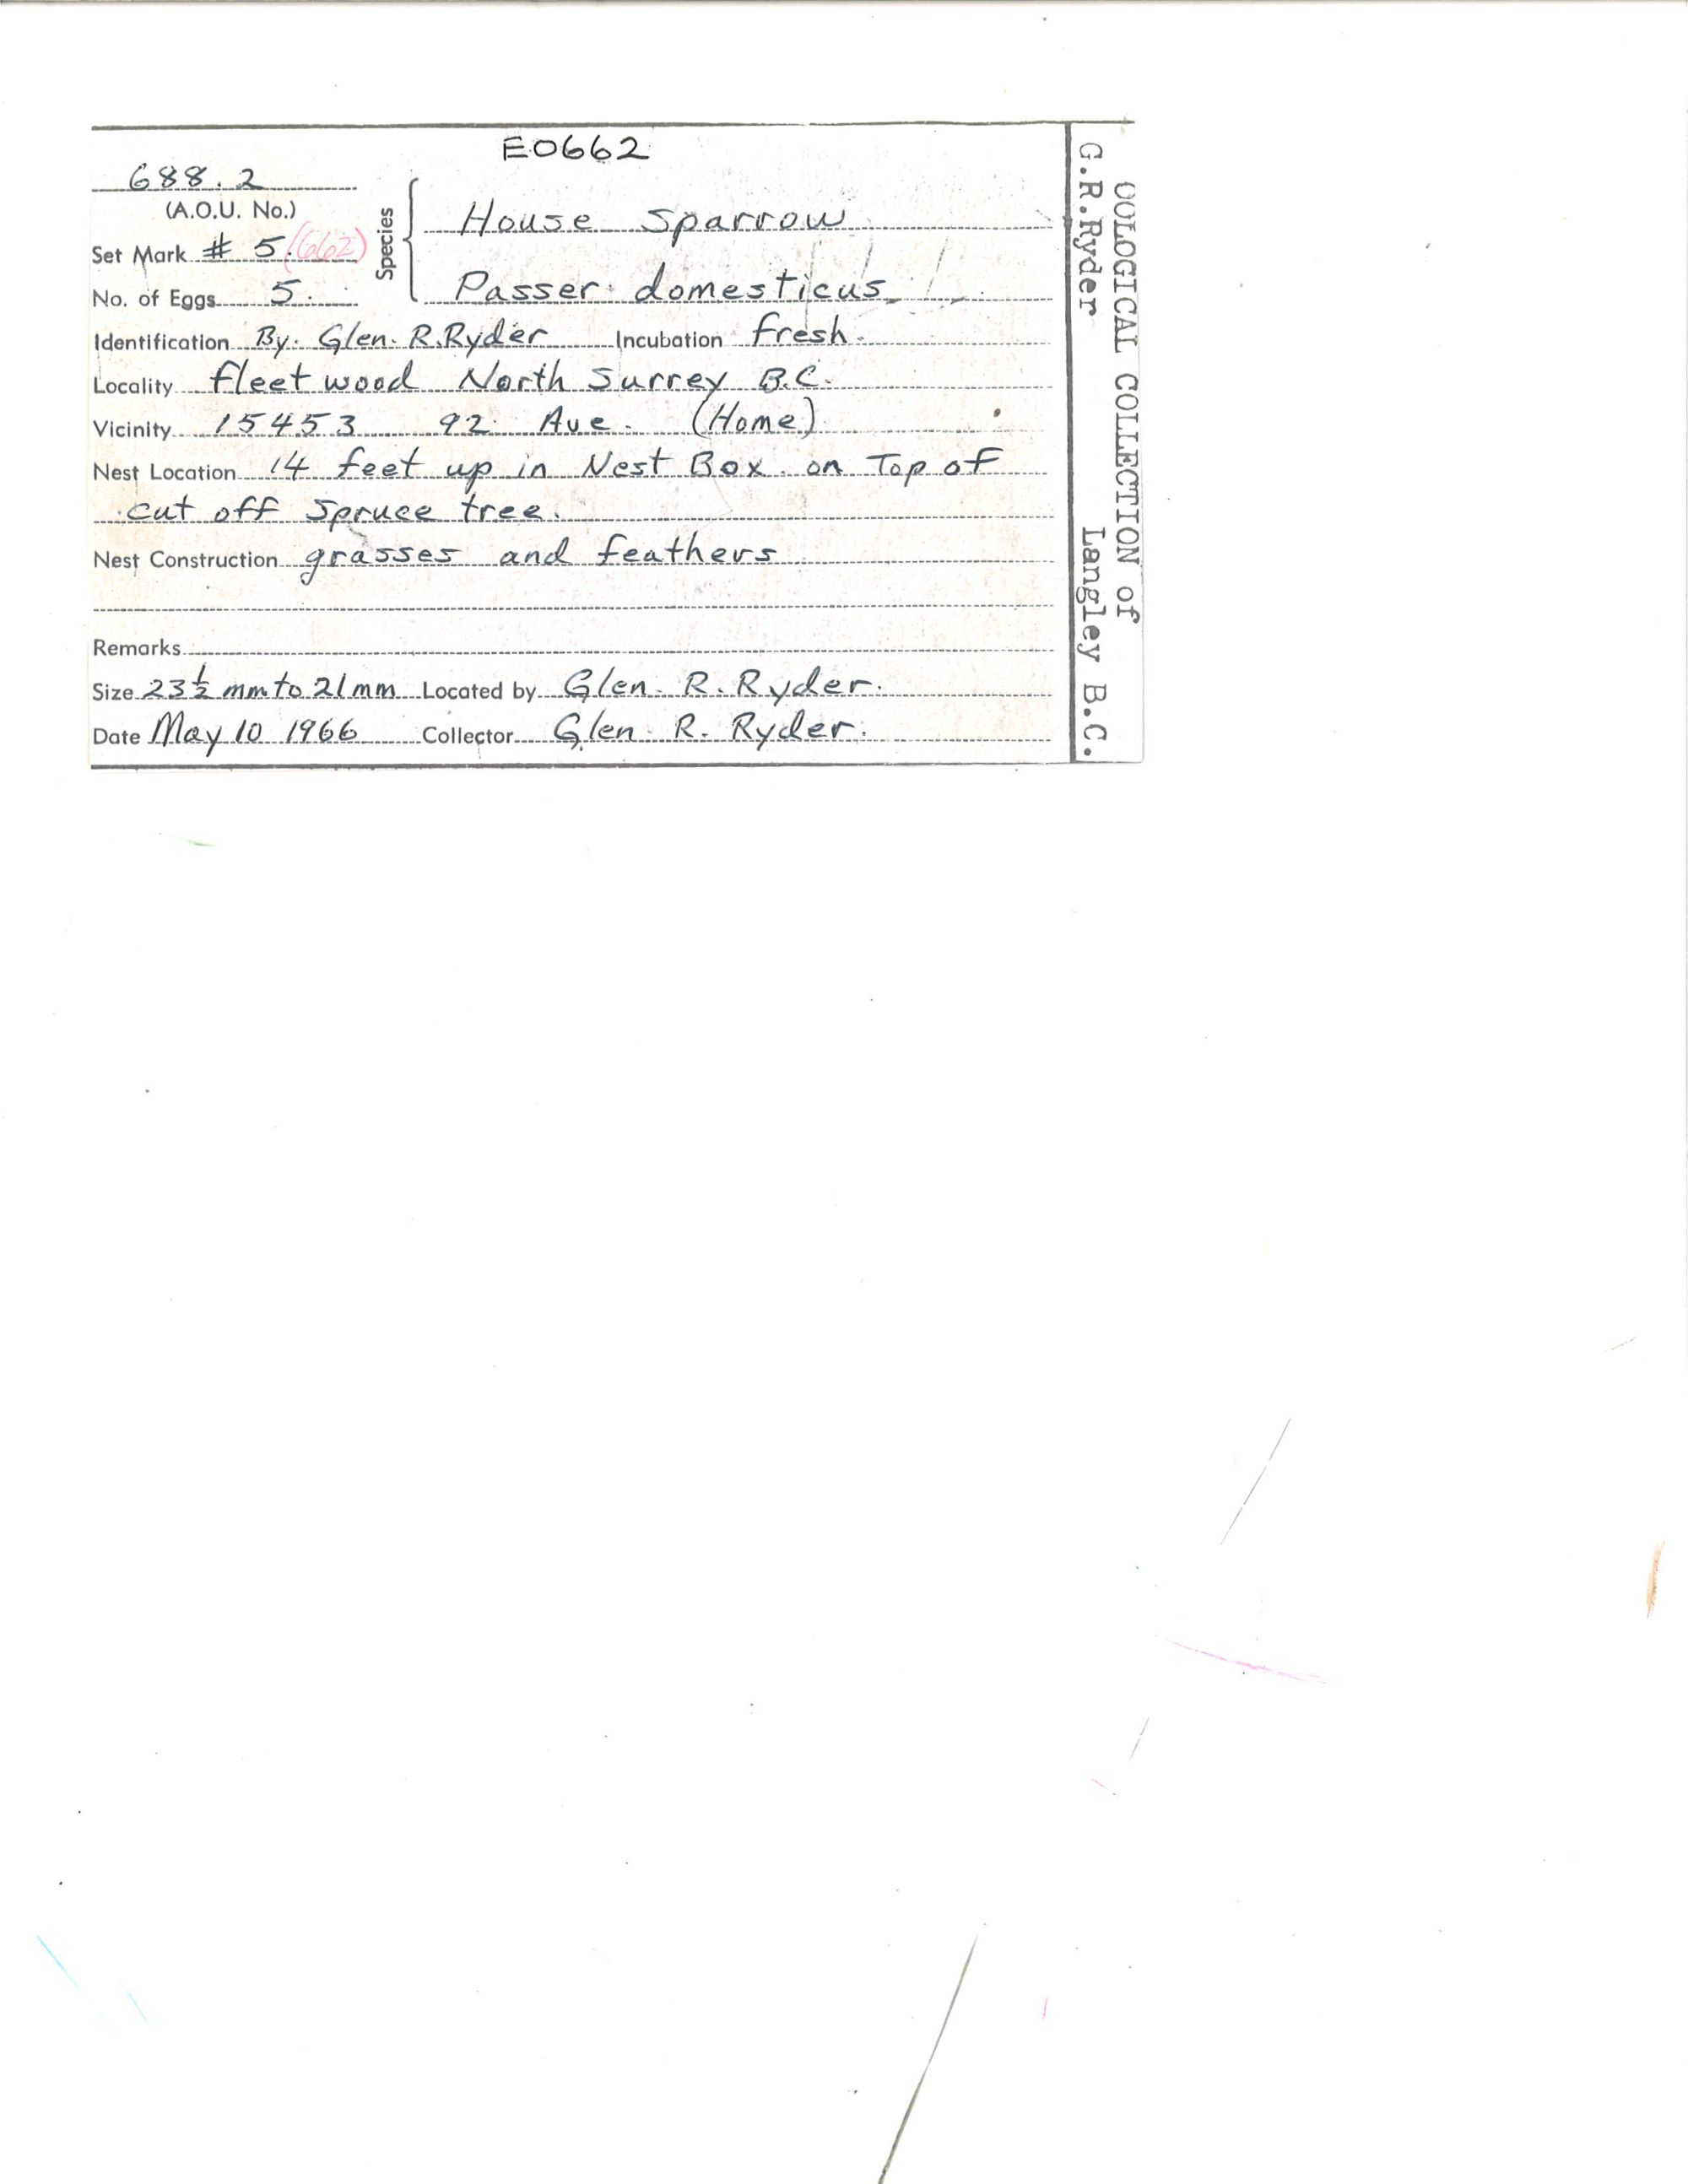 E0662
688.2
(A.O.U. No.)
Set Mark # 5. (662)
No. of Eggs 5.
Species
House Sparrow
Passer domesticus
Identification By. Glen. R. Ryder Incubation fresh.
Locality fleetwood North Surrey B.C.
Vicinity 15453 92 Ave. (Home)
Nest Location 14 feet up in Nest Box on Top of
cut off Spruce tree.
Nest Construction grasses and feathers
Remarks
Size 23½ mm to 21mm Located by Glen. R. Ryder.
Date May 10 1966 Collector Glen R. Ryder.
OOLOGICAL COLLECTION of
G.R.Ryder Langley B.C.